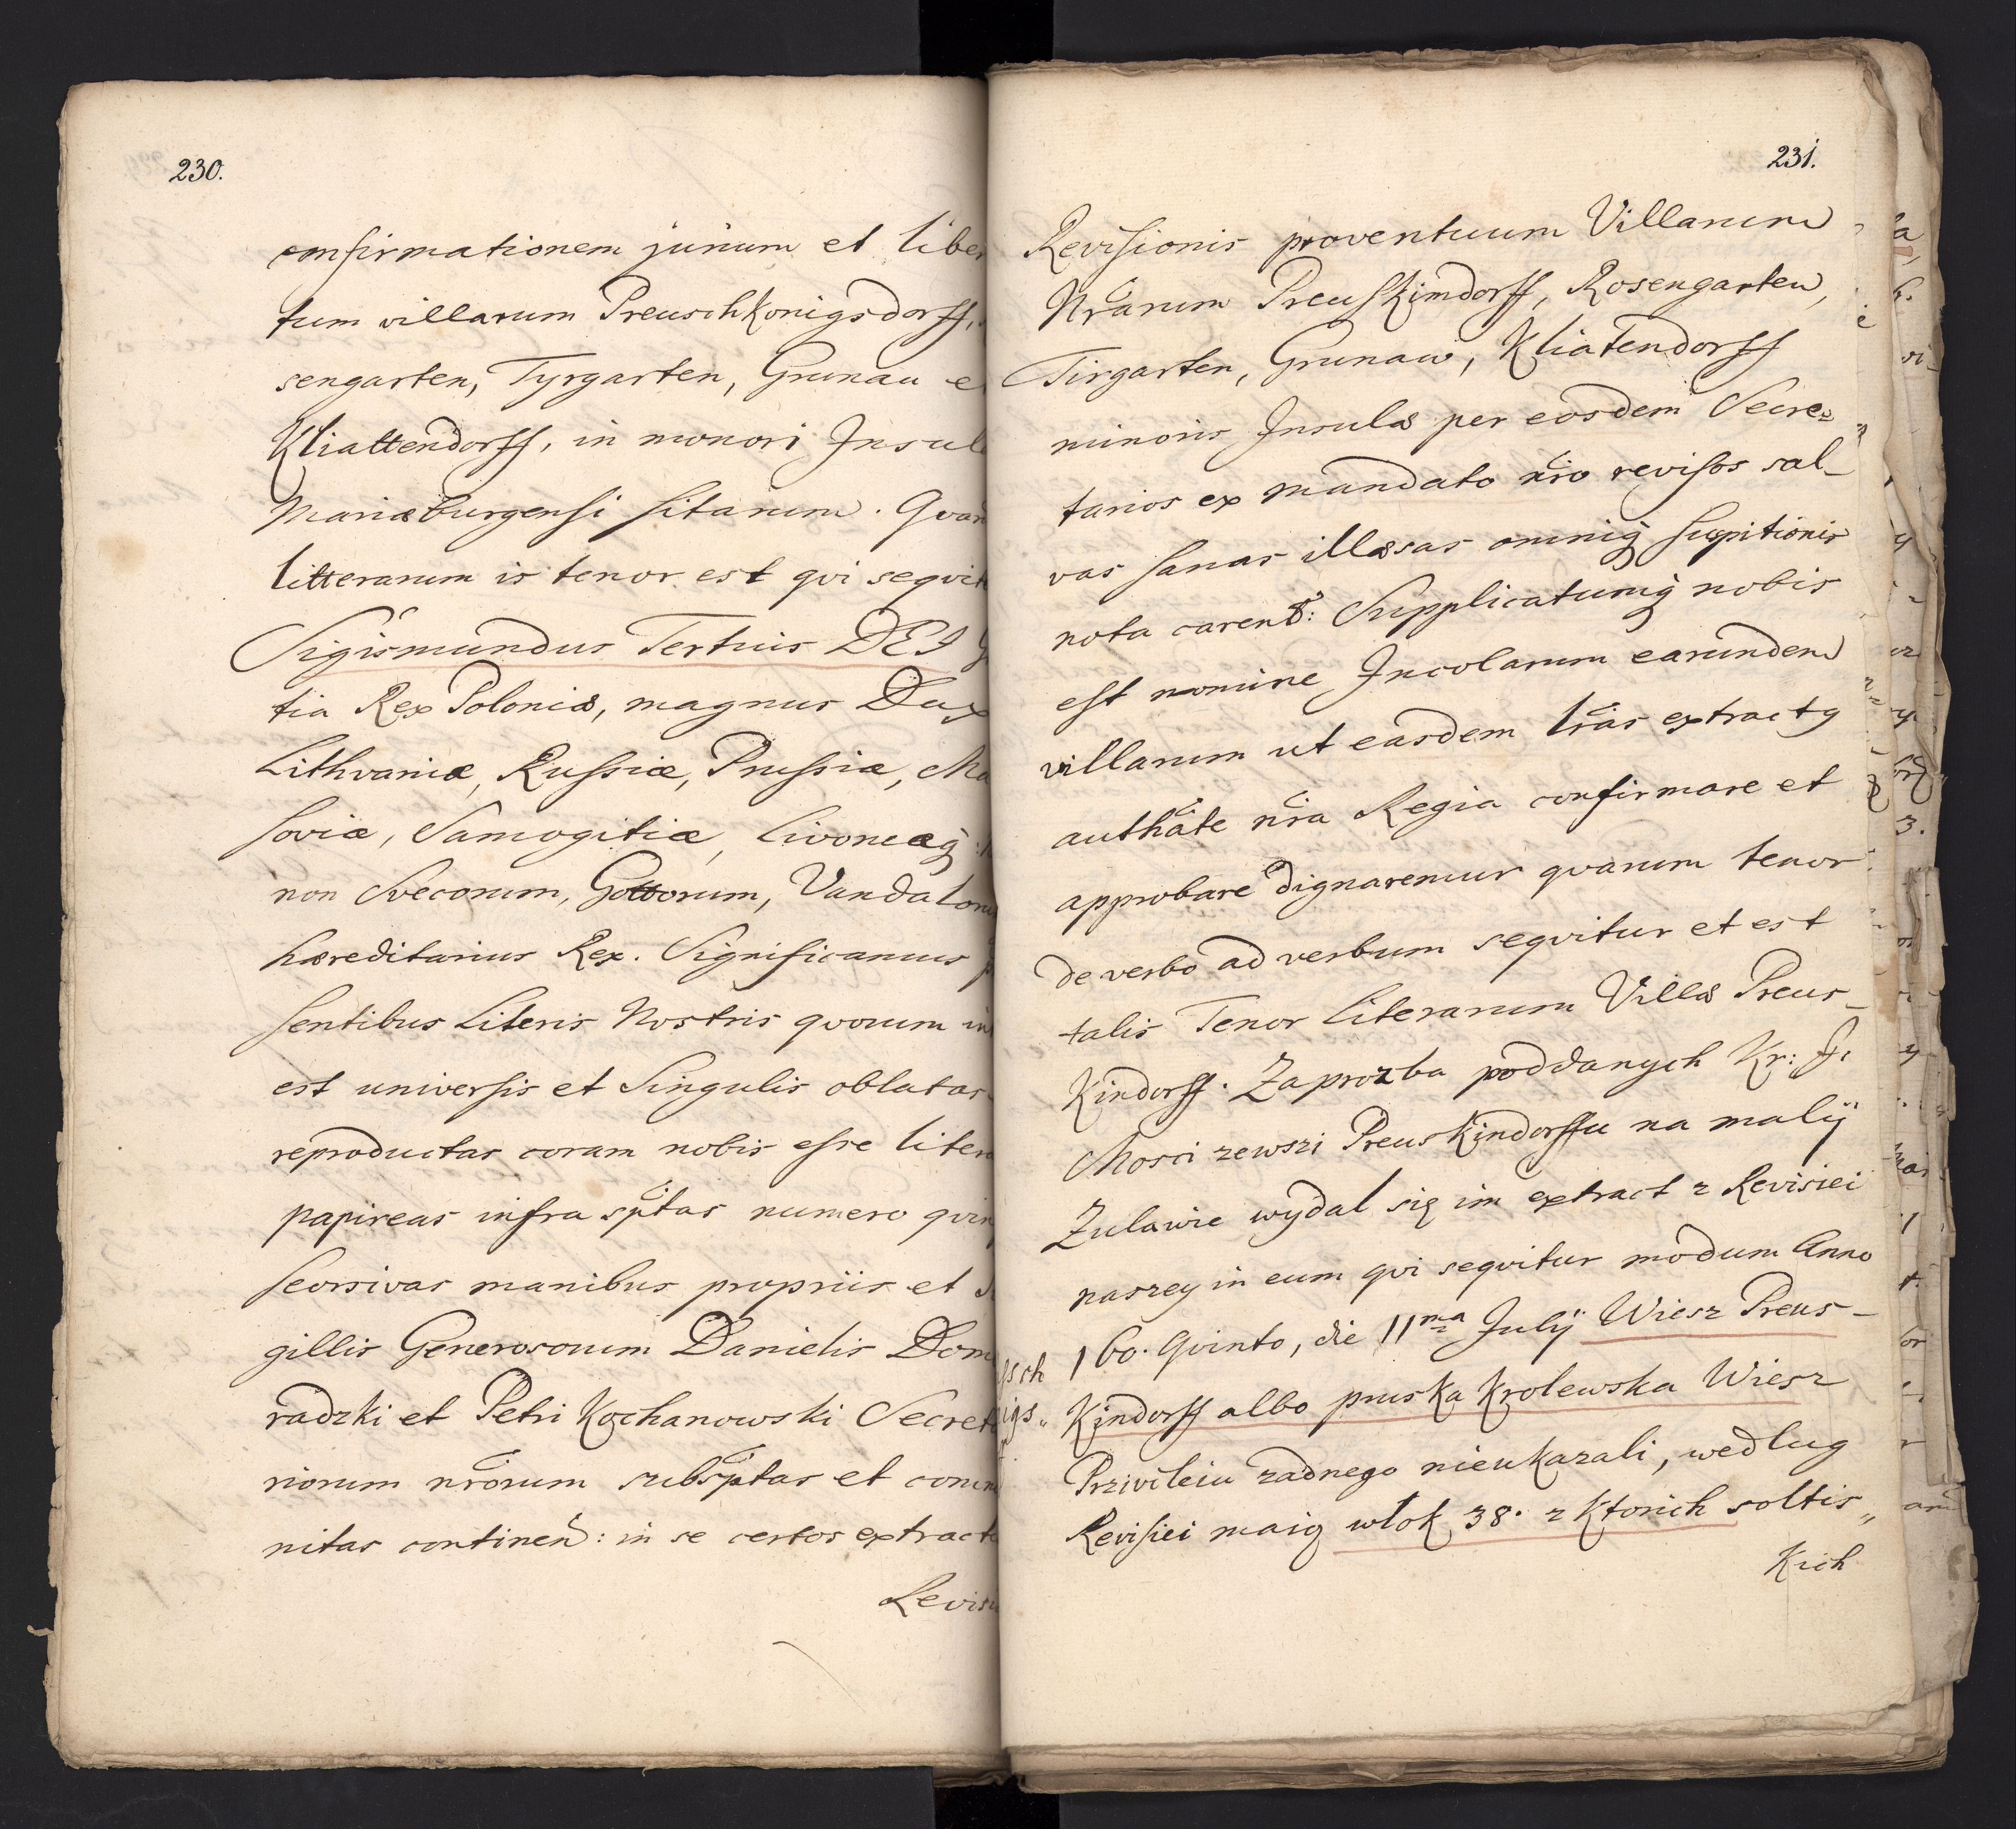 230.
confirmationem jurium et liber
tum villarum Preuschkonigsdorff,
sengarten, Tyrgarten, Grunau e
Kliattendorff, in monori Insul
Mariæburgensi sitarum. Qvar
litterarum is tenor est qvi seqvit
Sigismundus Tertius DEI G
tia Rex Poloniæ, magnus Dux
Lithvaniæ, Russiæ, Prussiæ, Ma
soviæ, Samogitiæ, Livoneæq
non Svecorum, Gottorum, Vandaloru
hæreditarius Rex. Significamus p
sentibus Literis Nostris qvorum in
est universis et Singulis oblatas
reproductas coram nobis esse litera
papireas infra sptas numero qvin
seorsivas manibus propriis et S
gillis Generosorum Danielis Dom
radzki et Petri Kochanowski Secret
riorum nrorum subsptas et com
nitas continen: in se certos extract
Revisi
231.
Revisionis proventuum Villarum
Nrarum Preuskimdorff, Rosengarten,
Tirgarten, Grunaw, Kliatendorff
minoris Insulæ per eosdem Secre
tarios ex mandato nro revisos sal_
vas sanas illæsas omniq suspitionis
nota caren: Supplicatumq nobis
est nomine Incolarum earundem
villarum ut easdem lras extractq
authate nra Regia confirmare et
approbare dignaremur qvarum tenor
de verbo ad verbum seqvitur et est
talis Tenor Literarum Villæ Preus_
Kindorff. Za prozba poddanych Kr: J.
Mosci zewszi Preuskindorffu na malÿ
Zulawie wydal się im extract z Revisiei
naszey in eum qvi seqvitur modum Anno
160. Qvinto, die 11ma Julÿ Wiesz Preus_
sch
Kindorff albo pruska Krolewska Wiesz
igs"
Prziwileiu zadnego nieukazali, według
Revisiei maią włok 38. z ktorich soltis"
Kich